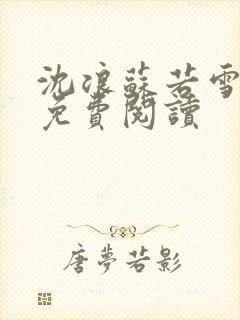 沈浪蘇若雪
免費閱讀
唐夢若影